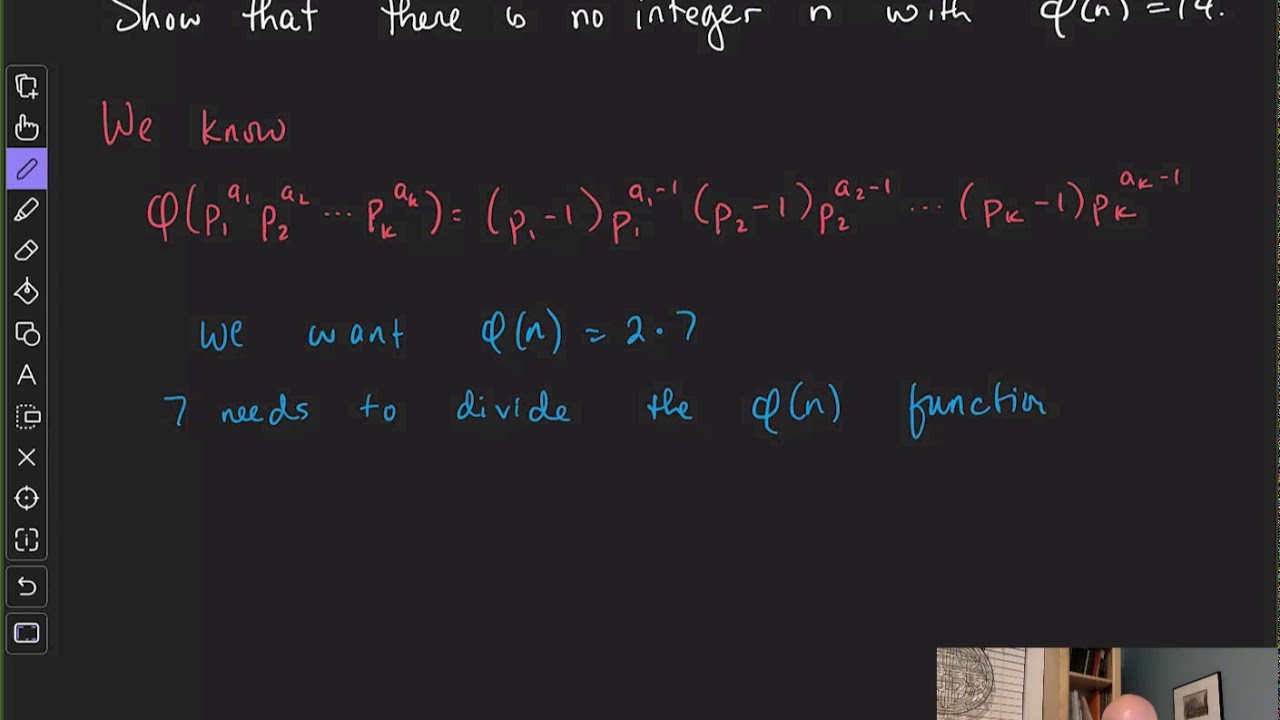 Show that there is no integer n with φ(n) = 14.
We know
φ(p₁^{a₁} p₂^{a₂} ⋯ p_k^{a_k}) = (p₁ - 1) p₁^{a₁-1} (p₂ - 1) p₂^{a₂-1} ⋯ (p_k - 1) p_k^{a_k-1}
We want φ(n) = 2 · 7
7 needs to divide the φ(n) function